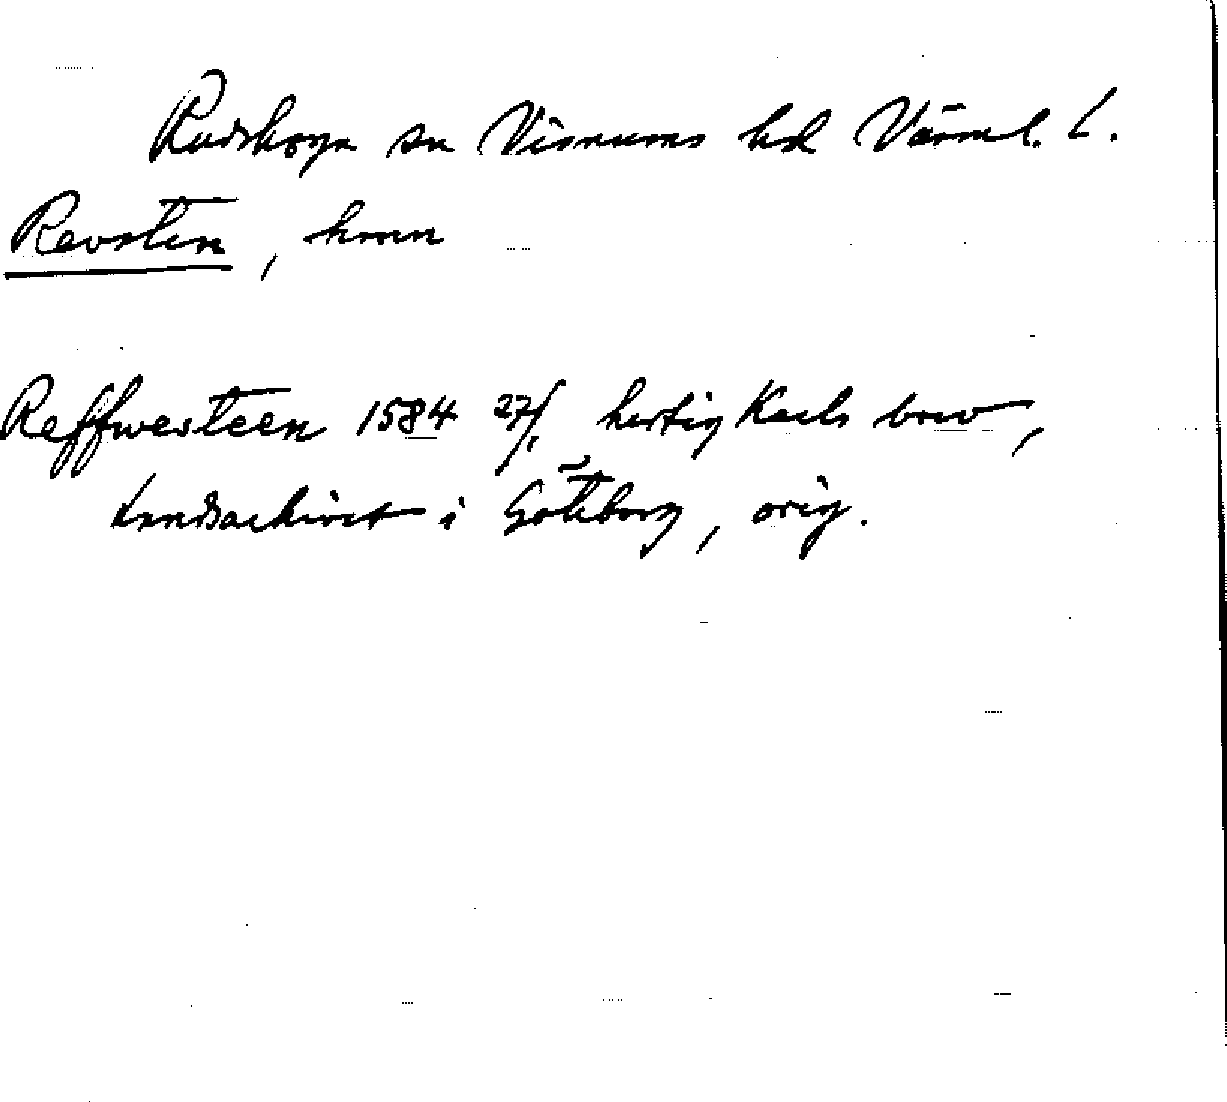 Rudskoga sn Visnums hd Värml. L.
Revsten, hmn
Reffwesteen 1584 27/1 hertig Karls brev,
Landsarkivet i Göteborg, orig.